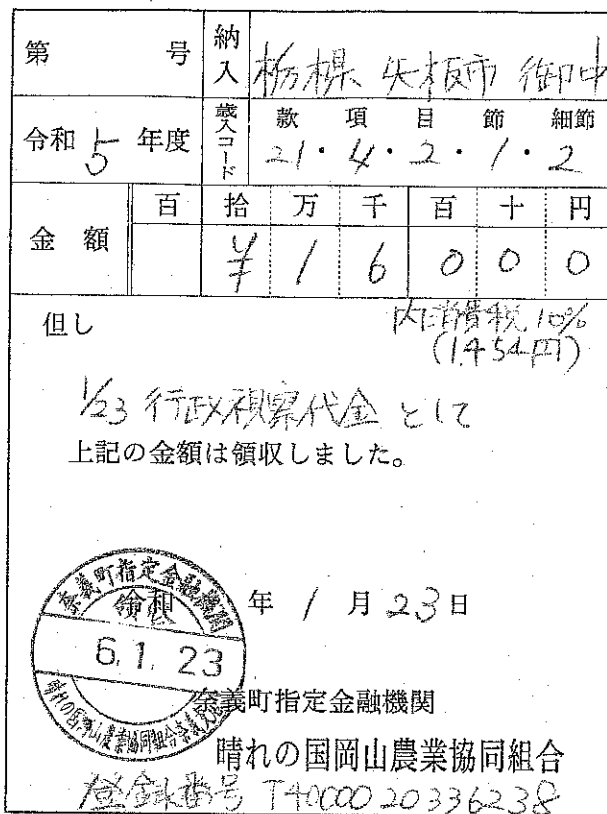 第　号
納入 栃木県 矢板市 御中
令和 5 年度
歳入コード 款 項 目 節 細節
21・4・2・1・2
金額 百 拾 万 千 百 十 円
¥ 1 6 0 0 0
但し 内消費税 10%
(1,454円)
1/23 行政視察代金 として
上記の金額は領収しました。
令和 年 1 月 23 日
奈義町指定金融機関
領収
6.1.23
晴れの国岡山農業協同組合奈義支店
奈義町指定金融機関
晴れの国岡山農業協同組合
登録番号 T4000020336238